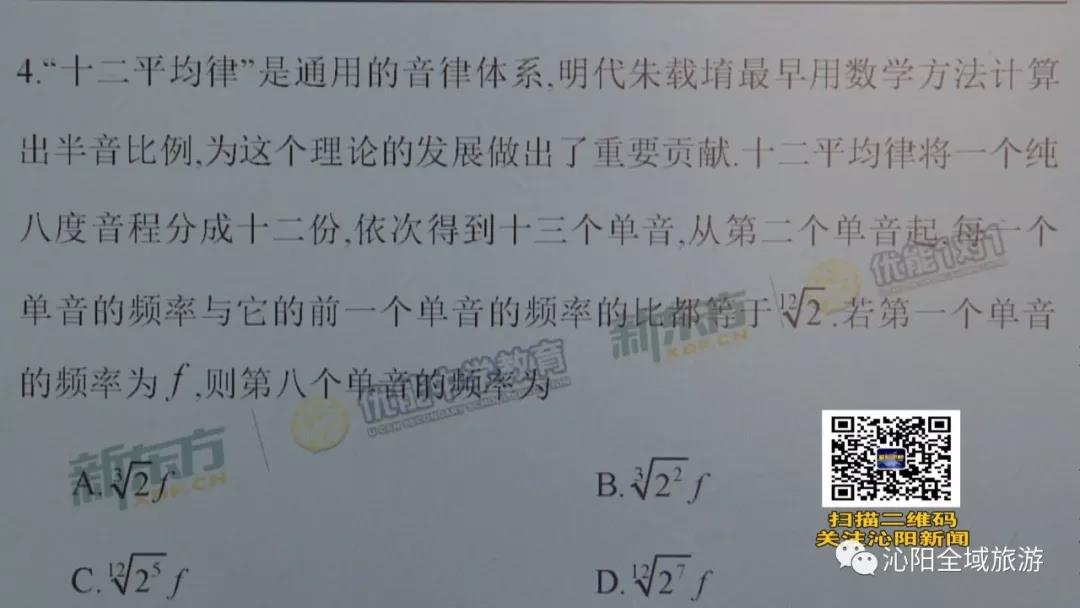 4.“十二平均律”是通用的音律体系,明代朱载堉最早用数学方法计算
出半音比例,为这个理论的发展做出了重要贡献.十二平均律将一个纯
八度音程分成十二份,依次得到十三个单音,从第二个单音起,每一个
单音的频率与它的前一个单音的频率的比都等于 \sqrt[12]{2}.若第一个单音
的频率为 f,则第八个单音的频率为
A. \sqrt[3]{2} f
B. \sqrt[3]{2^2} f
C. \sqrt[12]{2^5} f
D. \sqrt[12]{2^7} f
优能1对1
新东方
XDF.CN
优能中学教育
U-CAN SECONDARY SCHOOL EDUCATION
新东方
XDF.CN
扫描二维码
关注沁阳新闻
沁阳全域旅游